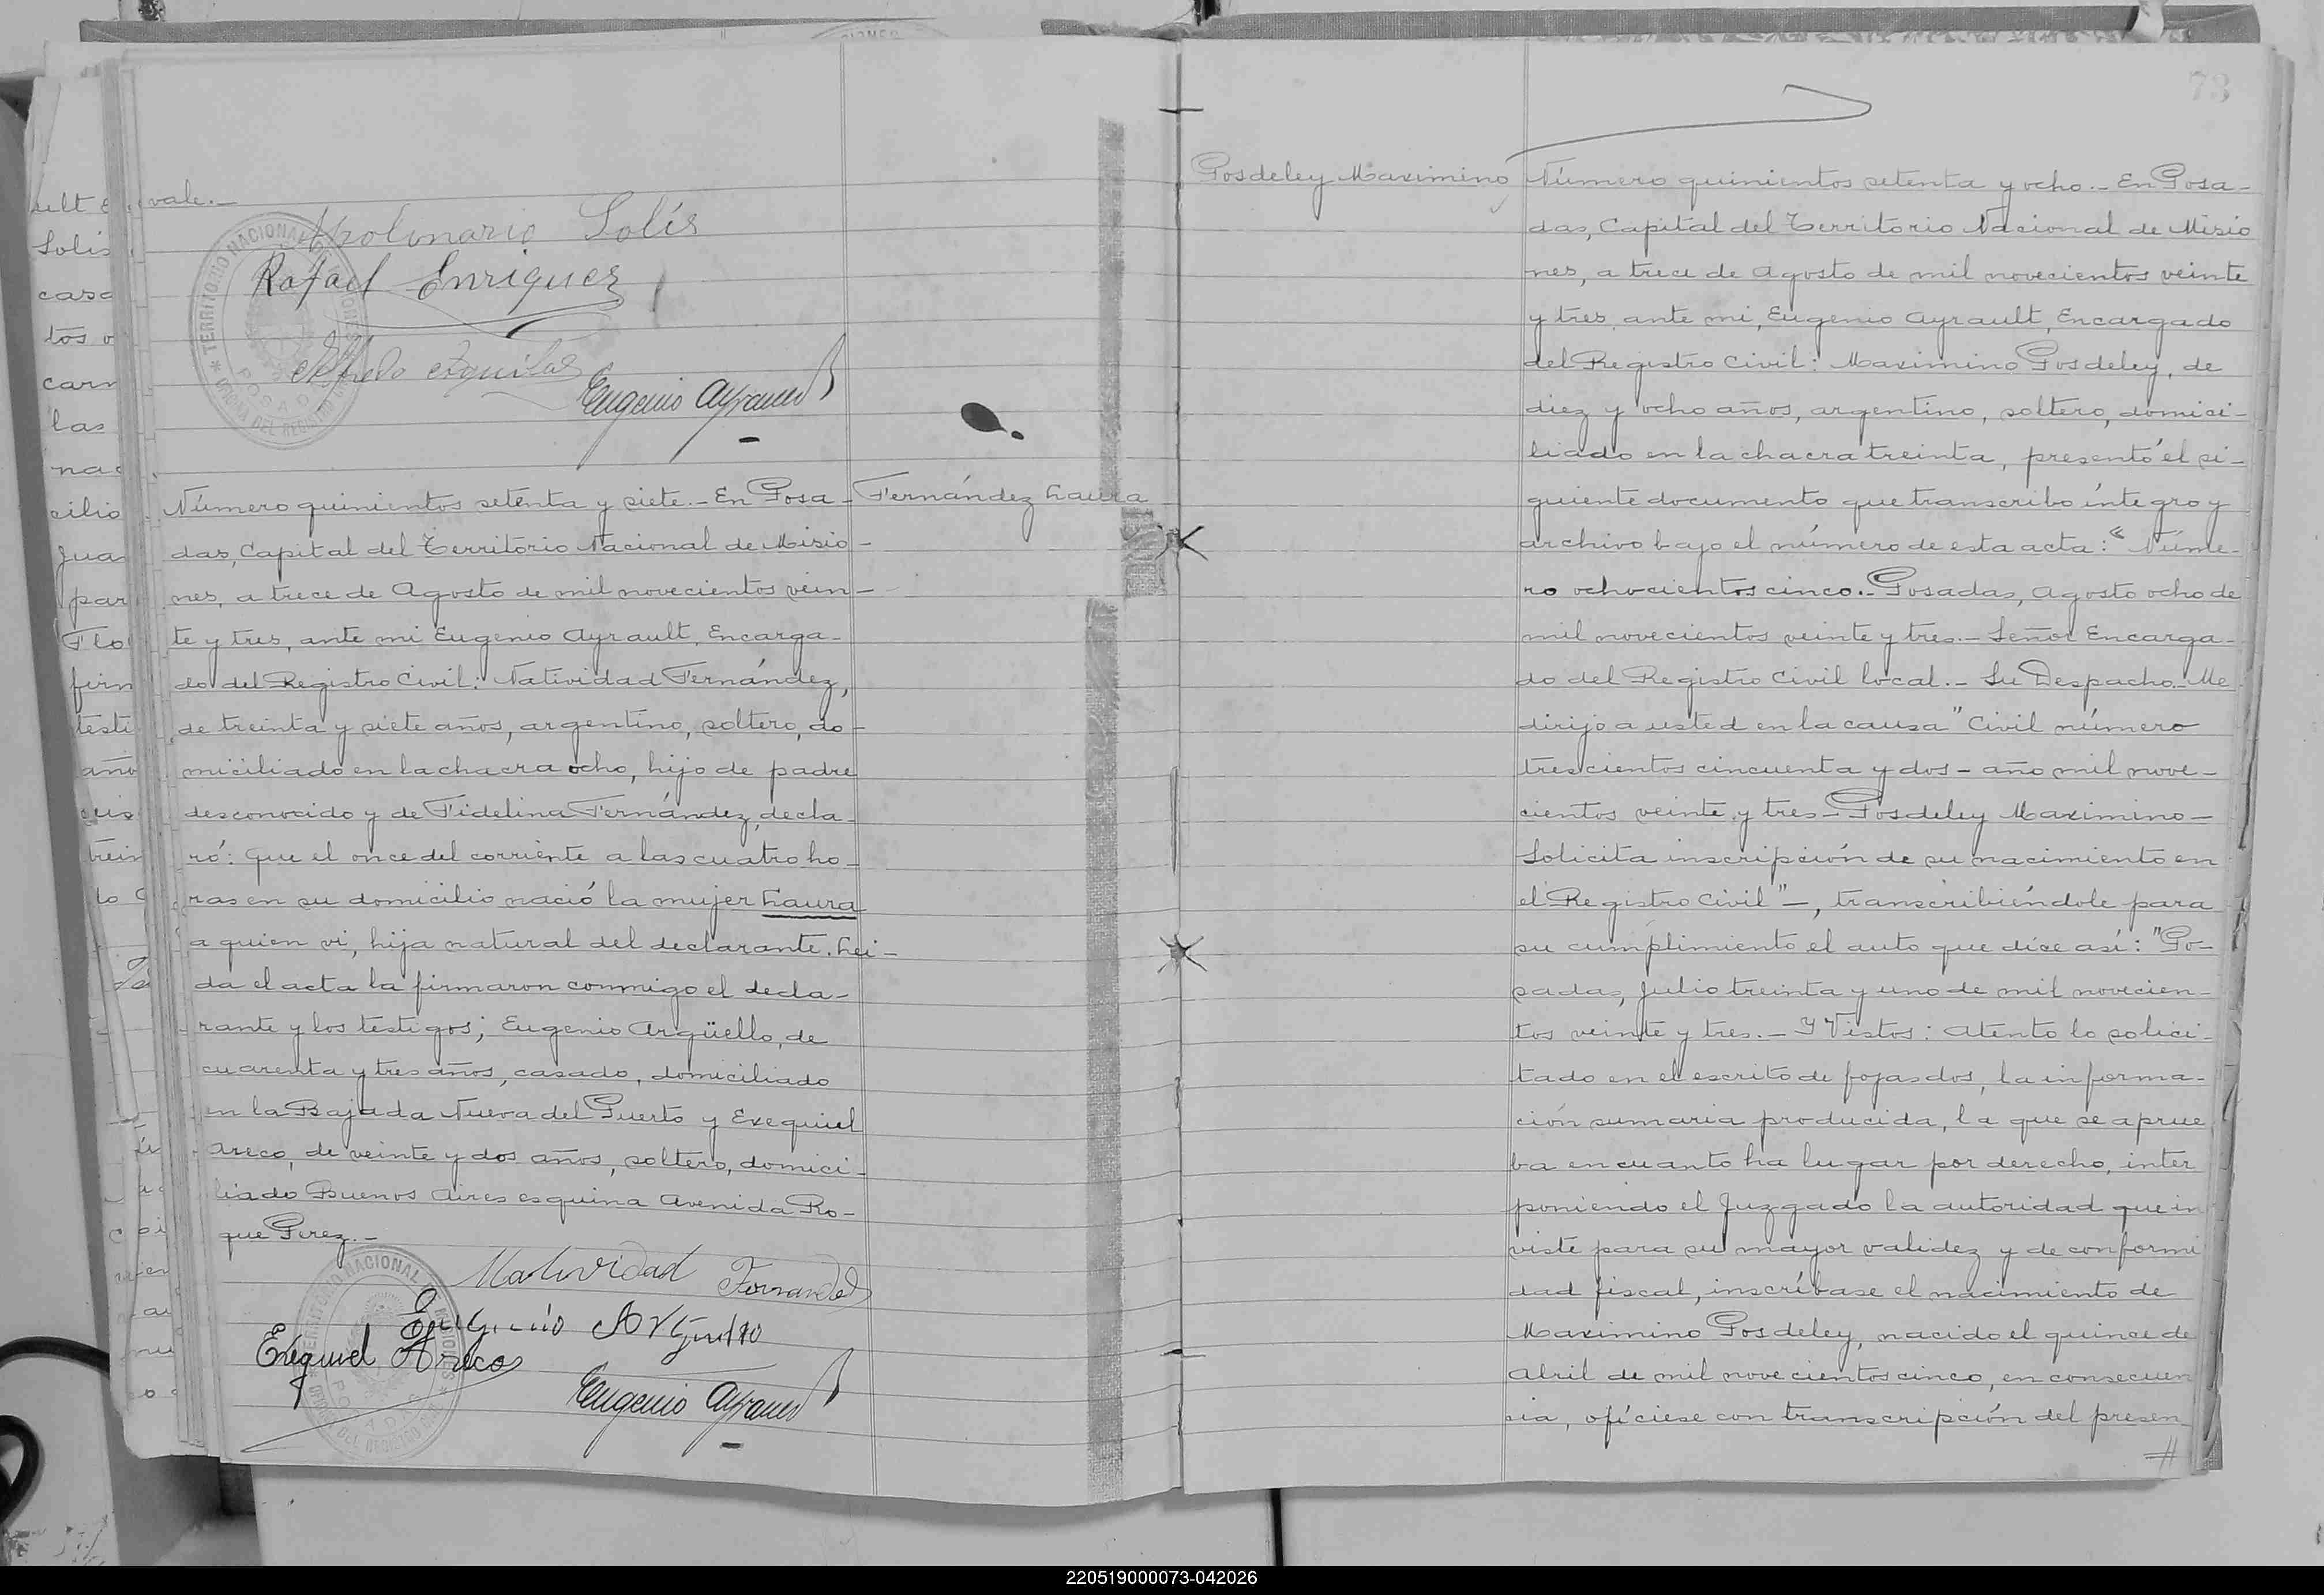 vale.—
Apolinario Solís
Rafael Enriquez
Alfredo
Eugenio Ayrault
TERRITORIO NACIONAL DE MISIONES
OFICINA DEL REGISTRO CIVIL
POSADAS
Número quinientos setenta y siete.— En Posa-
Fernández Laura
das, Capital del Territorio Nacional de Misio-
nes, a trece de Agosto de mil novecientos vein-
te y tres, ante mi Eugenio Ayrault, Encarga-
do del Registro Civil: Natividad Fernández,
de treinta y siete años, argentino, soltero, do-
miciliado en la chacra ocho, hijo de padre
desconocido y de Fidelina Fernández, decla-
ró: Que el once del corriente a las cuatro ho-
ras en su domicilio nació la mujer Laura
a quien vi, hija natural del declarante. Lei-
da el acta la firmaron conmigo el decla-
rante y los testigos; Eugenio Argüello, de
cuarenta y tres años, casado, domiciliado
en la Bajada Nueva del Puerto y Exequiel
Areco, de veinte y dos años, soltero, domici-
liado Buenos Aires esquina Avenida Ro-
que Perez.—
Natividad Fernandez
Eugenio Arguello
Exequiel Areco
Eugenio Ayrault
TERRITORIO NACIONAL DE MISIONES
OFICINA DEL REGISTRO CIVIL
POSADAS
73
Posdeley Maximino
Número quinientos setenta y ocho.— En Posa-
das, Capital del Territorio Nacional de Misio
nes, a trece de Agosto de mil novecientos veinte
y tres, ante mi, Eugenio Ayrault, Encargado
del Registro Civil: Maximino Posdeley, de
diez y ocho años, argentino, soltero, domici-
liado en la chacra treinta, presentó el si-
guiente documento que transcribo íntegro y
archivo bajo el número de esta acta: "Núme-
ro ochocientos cinco.— Posadas, Agosto ocho de
mil novecientos veinte y tres.— Señor Encarga-
do del Registro Civil local.— Su Despacho.— Me
dirijo a usted en la causa "Civil número
trescientos cincuenta y dos— año mil nove-
cientos veinte y tres— Posdeley Maximino—
Solicita inscripción de su nacimiento en
el Registro Civil"—, transcribiéndole para
su cumplimiento el auto que dice así: "Po-
sadas, Julio treinta y uno de mil novecien-
tos veinte y tres.— Y Vistos: Atento lo solici-
tado en el escrito de fojas dos, la informa-
ción sumaria producida, la que se aprue
ba en cuanto ha lugar por derecho, inter
poniendo el Juzgado la autoridad que in
viste para su mayor validez y de conformi
dad fiscal, inscríbase el nacimiento de
Maximino Posdeley, nacido el quince de
Abril de mil novecientos cinco, en consecuen
cia, ofíciese con transcripción del presen-
//
220519000073-042026